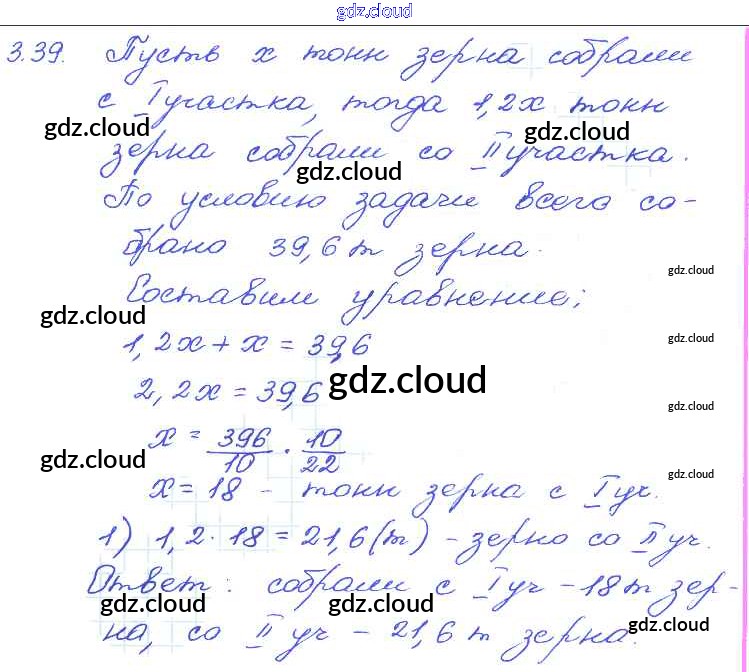 gdz.cloud
3.39. Пусть x тонн зерна собрали
с I участка, тогда 1,2x тонн
gdz.cloud gdz.cloud
зерна собрали со II участка.
gdz.cloud
По условию задачи всего со-
брано 39,6 т зерна.
gdz.cloud
Составим уравнение:
gdz.cloud
1,2x + x = 39,6
gdz.cloud
2,2x = 39,6
gdz.cloud
gdz.cloud
x = 396/10 · 10/22
gdz.cloud
gdz.cloud
x = 18 - тонн зерна с I уч.
1) 1,2 · 18 = 21,6 (т) - зерно со II уч.
Ответ: собрали с I уч - 18 т зер-
gdz.cloud gdz.cloud
на, со II уч - 21,6 т зерна.
gdz.cloud